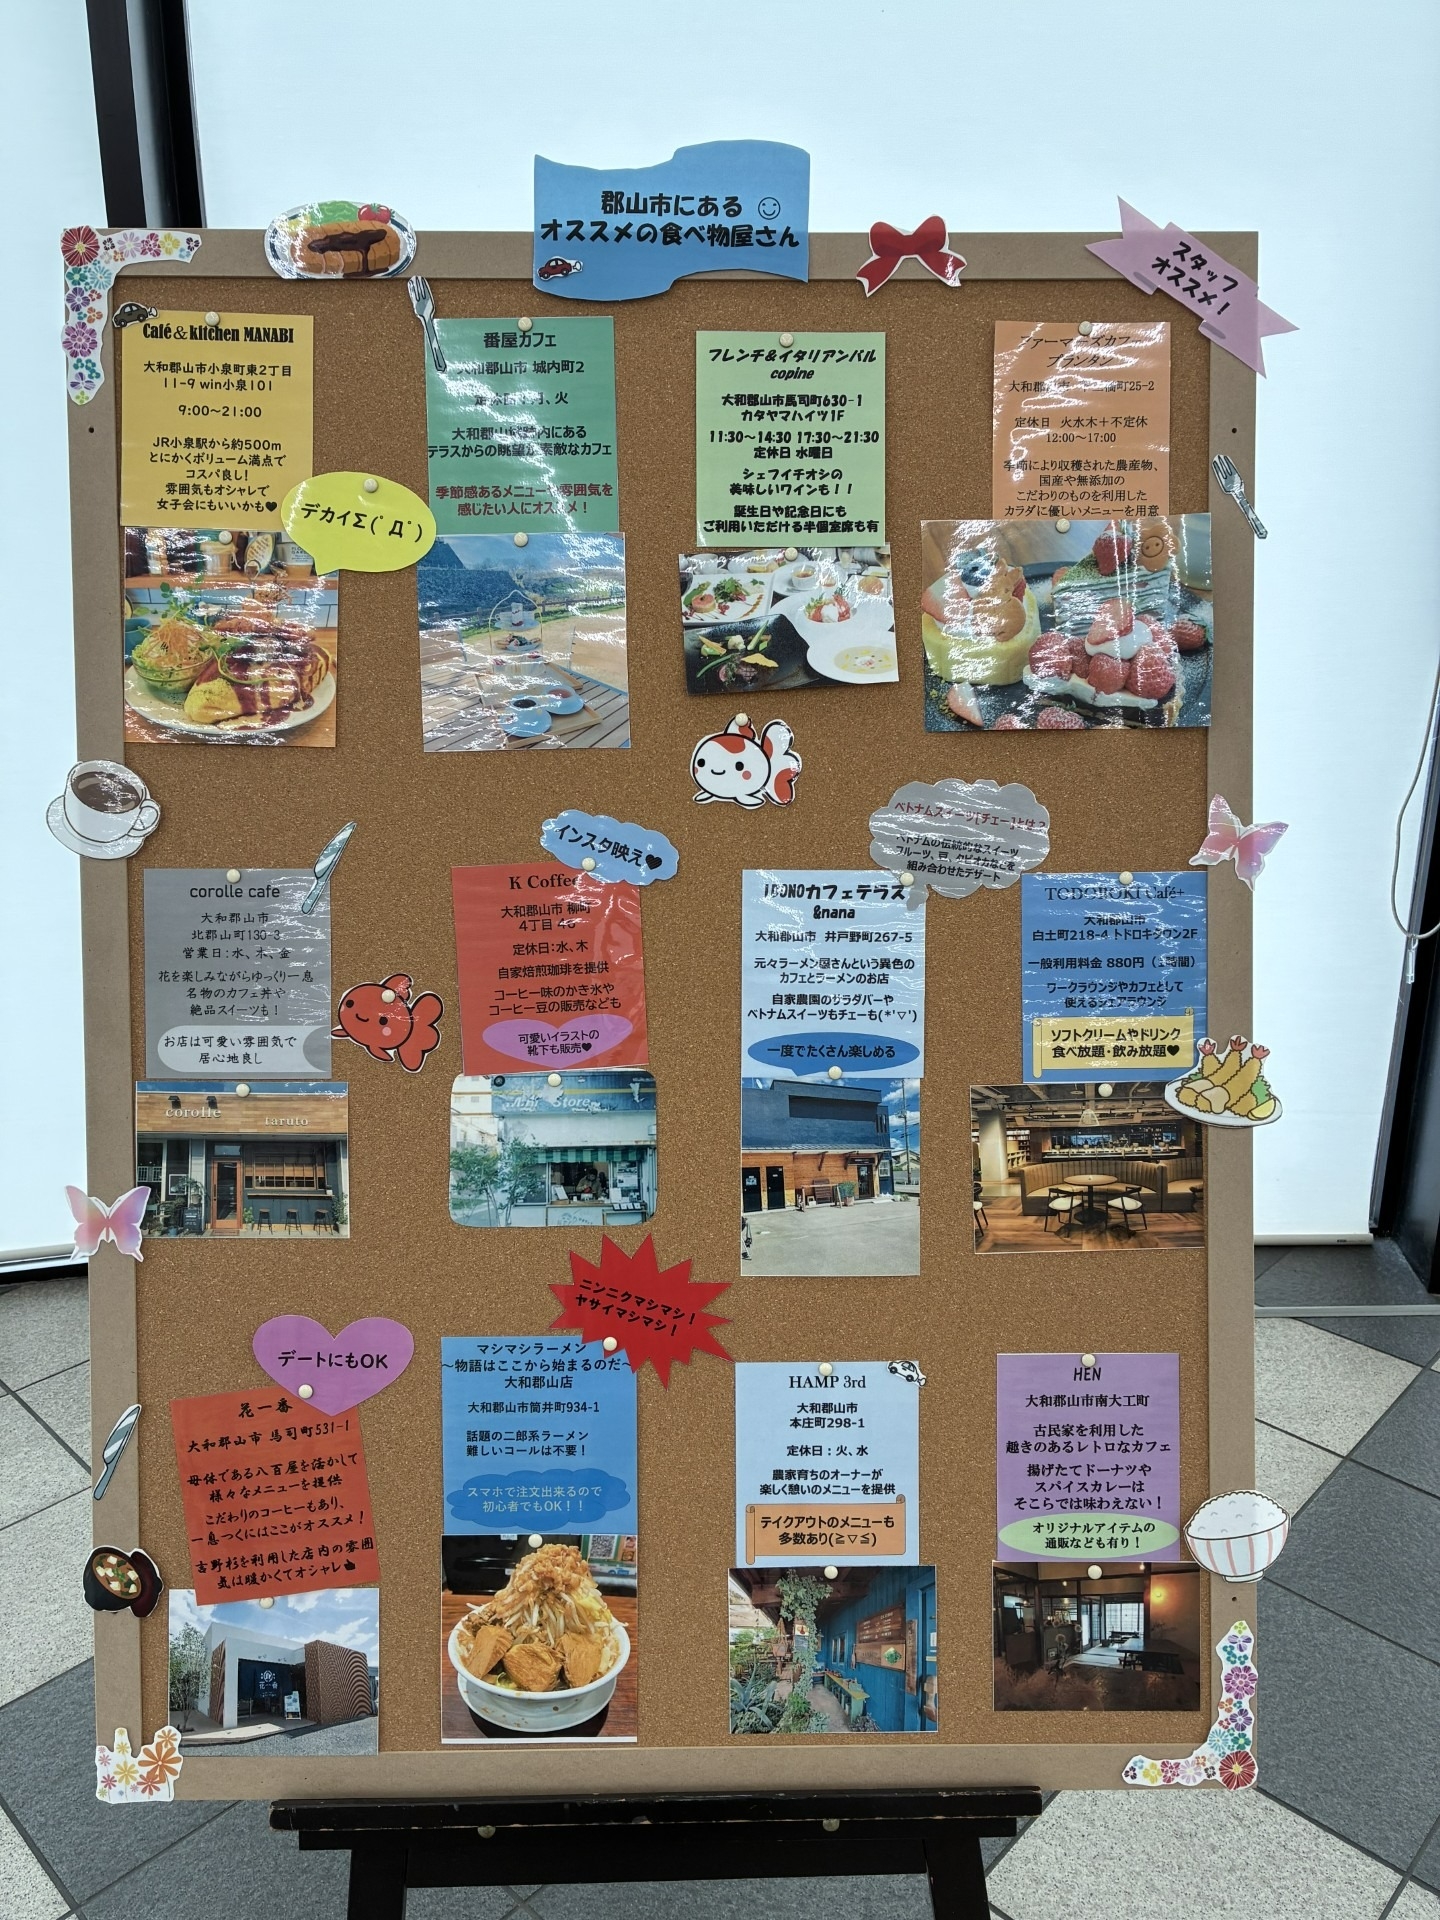 郡山市にある
オススメの食べ物屋さん
スタッフ
オススメ！
Café＆kitchen MANABI
大和郡山市小泉町東2丁目
11-9 win小泉101
9:00～21:00
JR小泉駅から約500m
とにかくボリューム満点で
コスパ良し！
雰囲気もオシャレで
女子会にもいいかも♥
デカイΣ(ﾟДﾟ)
番屋カフェ
大和郡山市 城内町2
月、火
大和郡山城跡内にある
テラスからの眺望が素敵なカフェ
季節感あるメニューや雰囲気を
感じたい人にオススメ！
フレンチ&イタリアンバル
copine
大和郡山市馬司町630-1
カタヤマハイツ1F
11:30～14:30 17:30～21:30
定休日 水曜日
シェフイチオシの
美味しいワインも！！
誕生日や記念日にも
ご利用いただける半個室席も有
ファーマーズカフェ
プランタン
大和郡山市 町25-2
定休日 火水木＋不定休
12:00～17:00
季節により収穫された農産物、
国産や無添加の
こだわりのものを利用した
カラダに優しいメニューを用意
corolle cafe
大和郡山市
北郡山町130-3
営業日：水、木、金
花を楽しみながらゆっくり一息
名物のカフェ丼や
絶品スイーツも！
お店は可愛い雰囲気で
居心地良し
corolle
taruto
インスタ映え♥
K Coffee
大和郡山市 柳町
4丁目 46
定休日：水、木
自家焙煎珈琲を提供
コーヒー味のかき氷や
コーヒー豆の販売なども
可愛いイラストの
靴下も販売♥
Store
ベトナムスイーツ[チェー]とは？
ベトナムの伝統的なスイーツ
フルーツ、豆、タピオカなどを
組み合わせたデザート
カフェテラス
&nana
大和郡山市 井戸野町267-5
元々ラーメン屋さんという異色の
カフェとラーメンのお店
自家農園のサラダバーや
ベトナムスイーツもチェーも(*'▽')
一度でたくさん楽しめる
TODOROKI Café+
大和郡山市
白土町218-4 トドロキタウン2F
一般利用料金 880円（1時間）
ワークラウンジやカフェとして
使えるシェアラウンジ
ソフトクリームやドリンク
食べ放題・飲み放題♥
デートにもOK
花一番
大和郡山市 馬司町531-1
母体である八百屋を活かして
様々なメニューを提供
こだわりのコーヒーもあり、
一息つくにはここがオススメ！
吉野杉を利用した店内の雰囲
気は暖かくてオシャレ
花一番
ニンニクマシマシ！
ヤサイマシマシ！
マシマシラーメン
～物語はここから始まるのだ～
大和郡山店
大和郡山市筒井町934-1
話題の二郎系ラーメン
難しいコールは不要！
スマホで注文出来るので
初心者でもOK！！
HAMP 3rd
大和郡山市
本庄町298-1
定休日：火、水
農家育ちのオーナーが
楽しく憩いのメニューを提供
テイクアウトのメニューも
多数あり(≧▽≦)
HEN
大和郡山市南大工町
古民家を利用した
趣きのあるレトロなカフェ
揚げたてドーナツや
スパイスカレーは
そこらでは味わえない！
オリジナルアイテムの
通販なども有り！